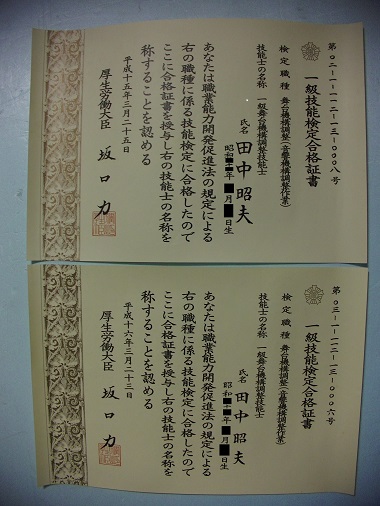 第02-1-112-13-0008号
一級技能検定合格証書
検定職種 舞台機構調整(音響機構調整作業)
技能士の名称 一級舞台機構調整技能士
氏名 田中昭夫
昭和 年 月 日生
あなたは職業能力開発促進法の規定による
右の職種に係る技能検定に合格したので
ここに合格証書を授与し右の技能士の名称を
称することを認める
平成十五年三月二十五日
厚生労働大臣 坂口力
第03-1-112-13-0006号
一級技能検定合格証書
検定職種 舞台機構調整(音響機構調整作業)
技能士の名称 一級舞台機構調整技能士
氏名 田中昭夫
昭和 年 月 日生
あなたは職業能力開発促進法の規定による
右の職種に係る技能検定に合格したので
ここに合格証書を授与し右の技能士の名称を
称することを認める
平成十六年三月二十三日
厚生労働大臣 坂口力